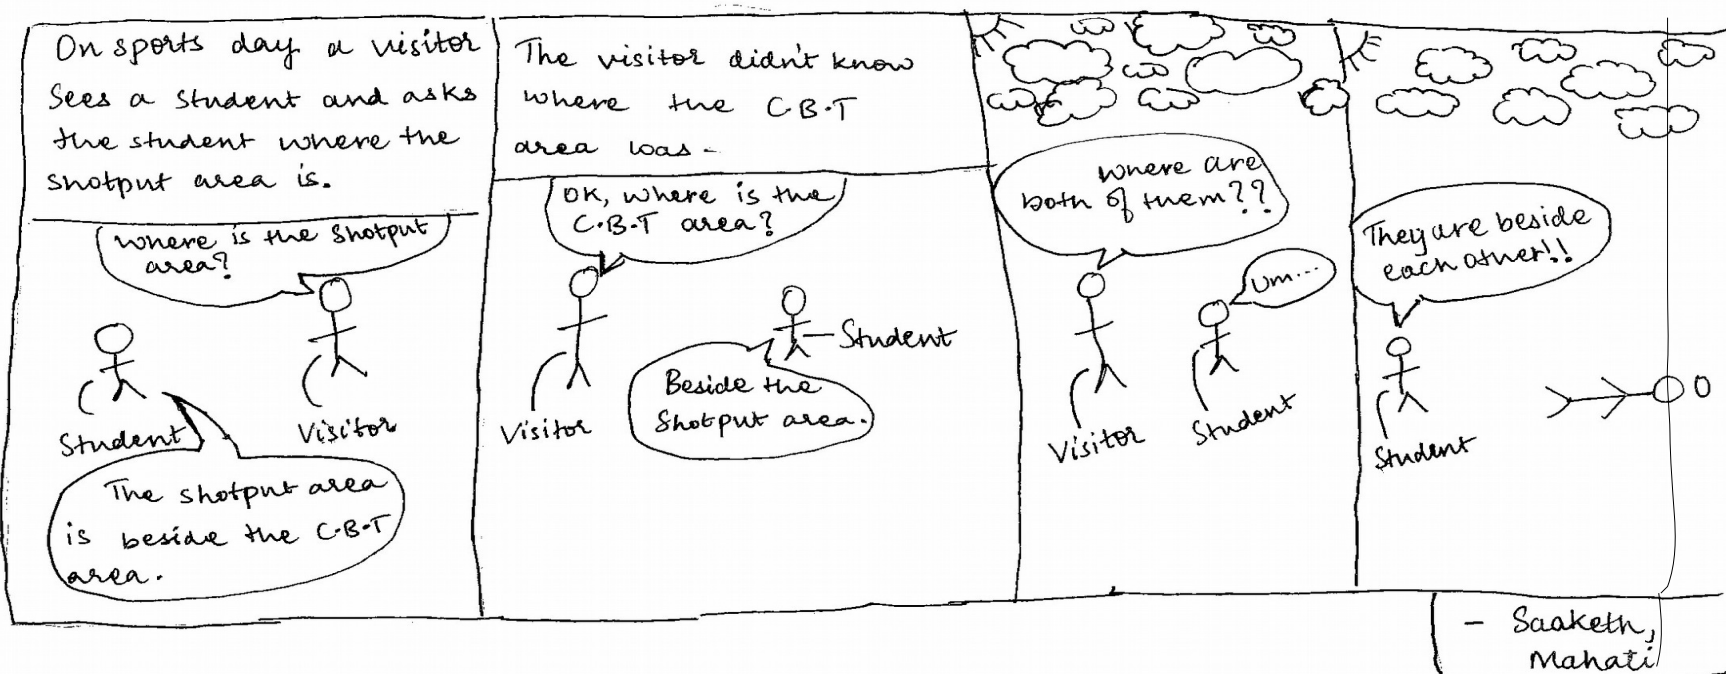 On sports day a visitor
sees a student and asks
the student where the
shotput area is.
Where is the shotput
area?
Student
Visitor
The shotput area
is beside the C.B.T
area.
The visitor didn't know
where the C.B.T
area was-
OK, where is the
C.B.T area?
Student
Beside the
Shotput area.
Visitor
Where are
both of them??
Um...
Visitor
Student
They are beside
each other!!
Student
O
- Saaketh,
Mahati